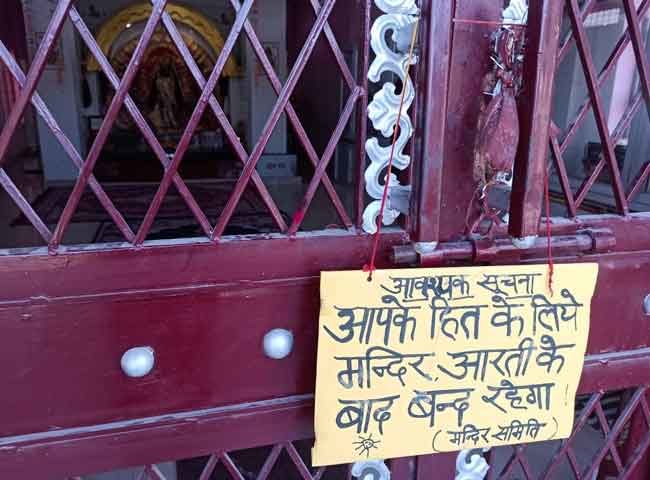 आवश्यक सूचना
आपके हित के लिये
मन्दिर, आरती के
बाद बन्द रहेगा !
( मन्दिर समिति )